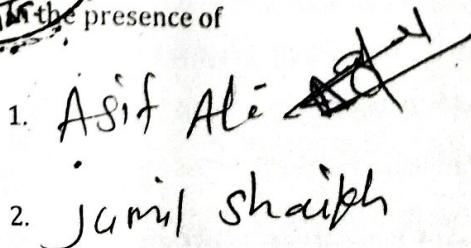 In the presence of
1. Asif Ali
2. Jamil Shaikh